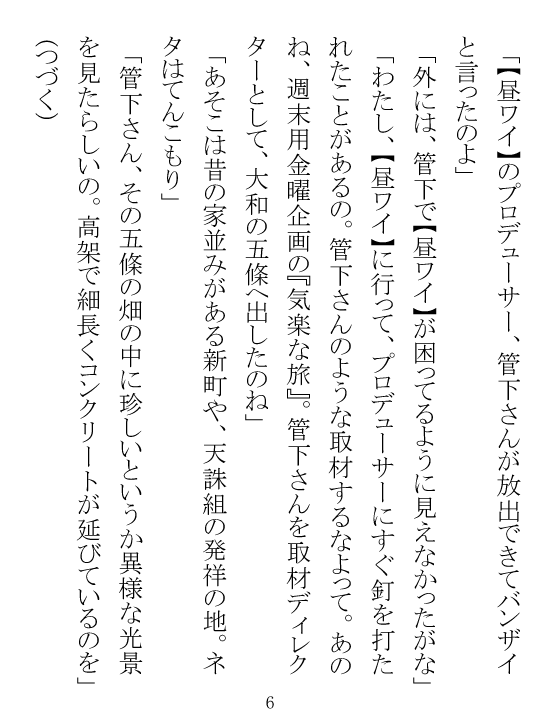 「【昼ワイ】のプロデューサー、管下さんが放出できてバンザイ
と言ったのよ」
「外には、管下で【昼ワイ】が困ってるように見えなかったがな」
「わたし、【昼ワイ】に行って、プロデューサーにすぐ釘を打た
れたことがあるの。管下さんのような取材するなよって。あの
ね、週末用金曜企画の『気楽な旅』。管下さんを取材ディレク
ターとして、大和の五條へ出したのね」
「あそこは昔の家並みがある新町や、天誅組の発祥の地。ネ
タはてんこもり」
「管下さん、その五條の畑の中に珍しいというか異様な光景
を見たらしいの。高架で細長くコンクリートが延びているのを」
(つづく)
6